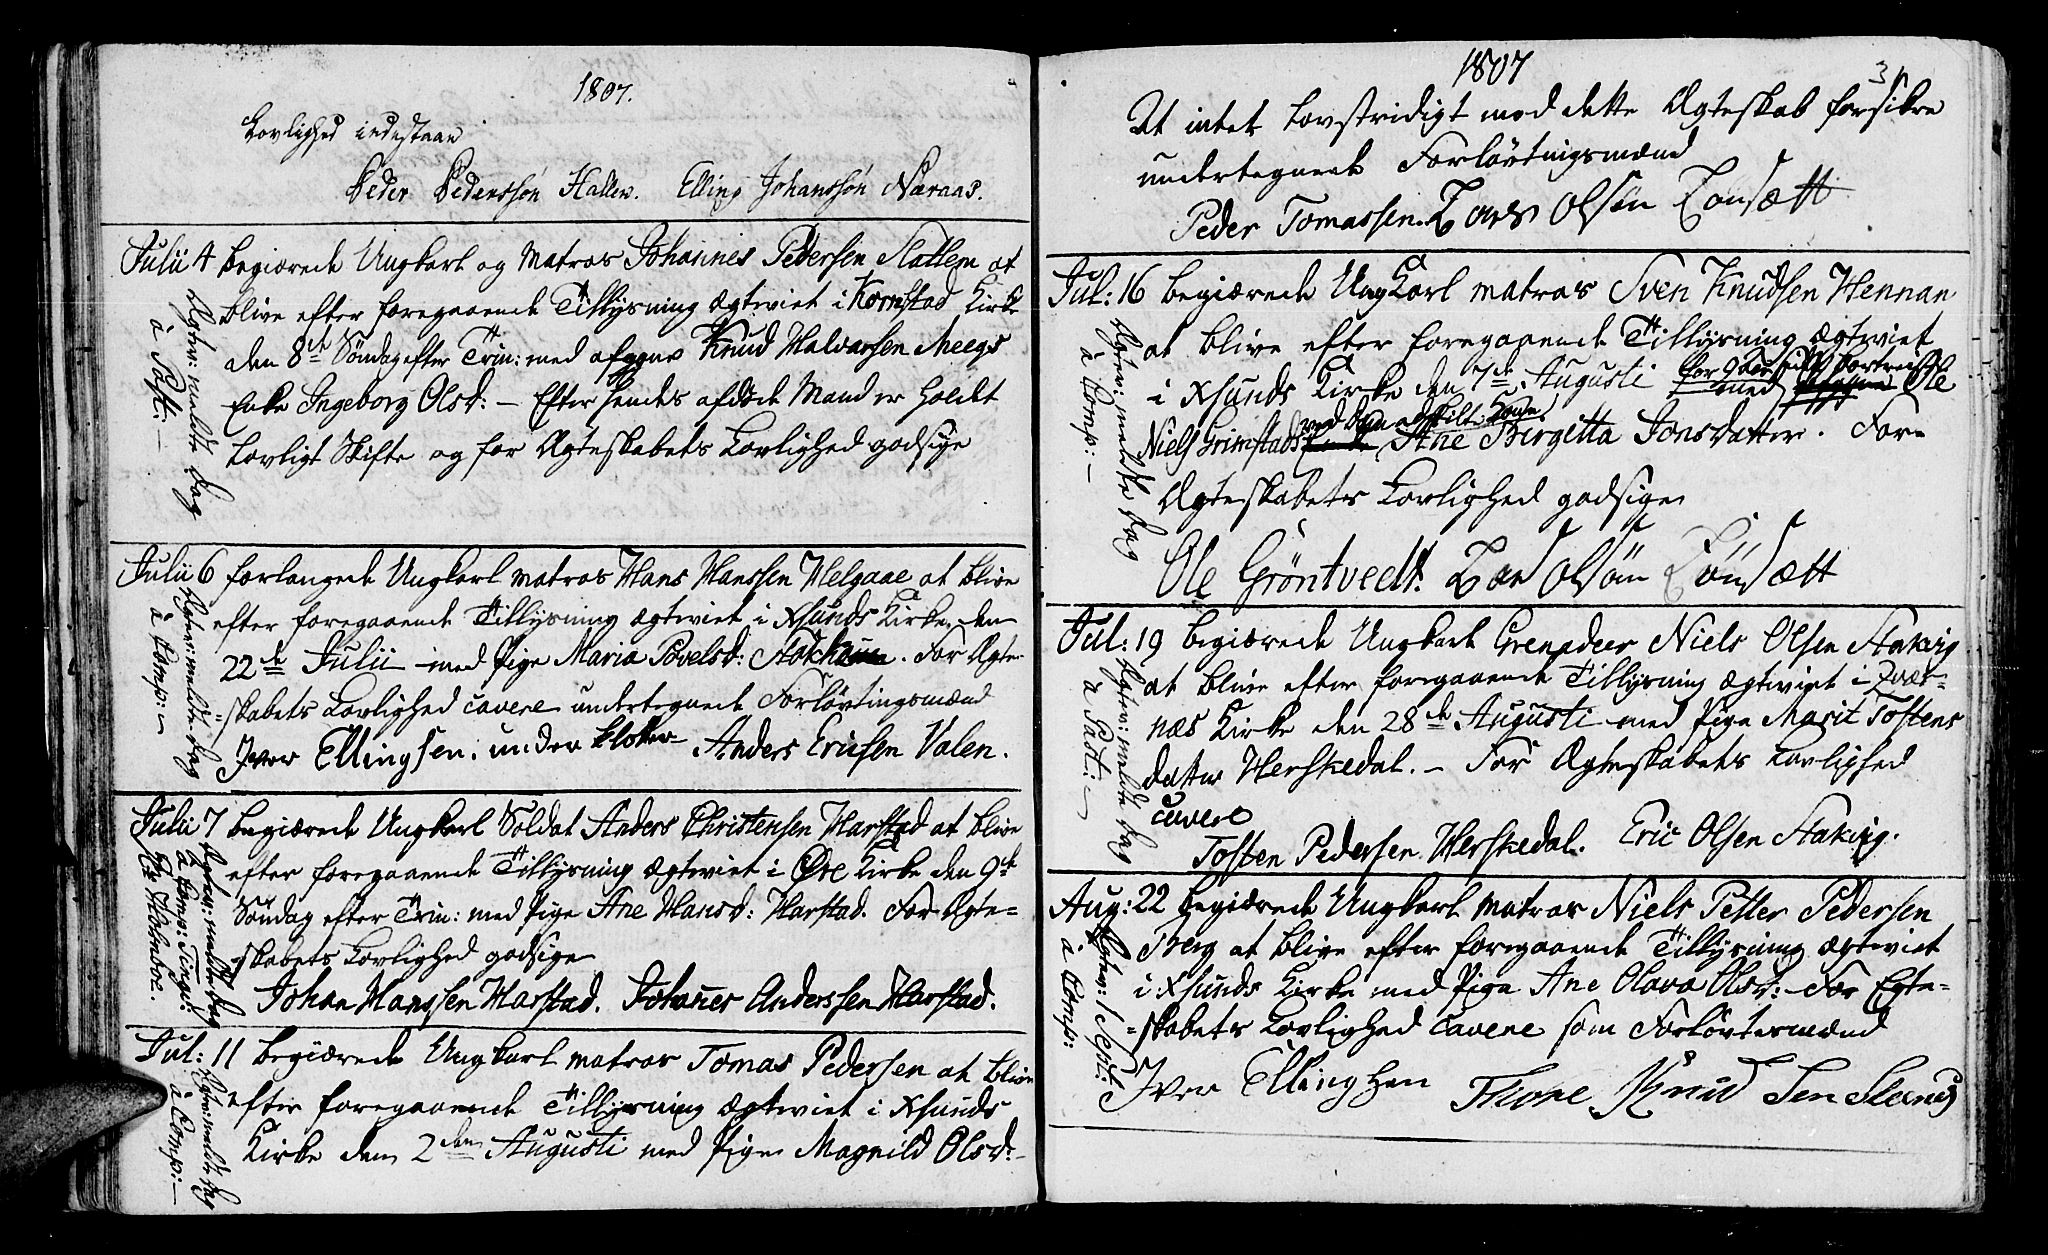 1807.
Lovlighed indestaar
Peder Pederssøn Hallen. Elling Johanssøn Naraas.
Julii 4 begiærede Ungkarl og Matros Johannes Pedersen Slatlem at
blive efter foregaaende Tillysning ægteviet i Kornstad Kirke
den 8de Søndag efter Trin: med afgagne Knud Halvarsen Meegs
Enke Ingeborg Olsd: – Efter hendes afdøde Mand er holdt
lovligt Skifte og for Ægteskabets Lovlighed godsige
Ægtev: meldte Dag
à Past: –
Julii 6 forlangede Ungkarl Matros Hans Hanssen Helgaae at blive
efter foregaaende Tillysning ægteviet i Xsunds Kirke den
22de Julii med Pige Maria Povelsd: For Ægte
skabets Lovlighed cavere undertegnede Forlovtningsmænd
Iver Ellingsen. under Klokker Anders Ericsen Valen.
Ægtev: meldte Dag
à Comp: –
Julii 7 begiærede Ungkarl Soldat Anders Christensen Harstad at blive
efter foregaaende Tillysning ægteviet i Øre Kirke den 9de
Søndag efter Trin: med Pige Ane Hansd: Harstad. For Ægte=
skabets Lovlighed godsige
Johan Hanssen Harstad. Johaner Anderssen Harstad.
Ægtev: meldte Dag
Jul: 11 begiærede Ungkarl Matros Tomas Pedersen at blive
efter foregaaende Tillysning ægteviet i Xsunds
Kirke den 2den Augusti med Pige Magnild Olsd:
Ægtev: meldte Dag
à Comp: –
1807
At intet Lovstridigt med dette Ægteskab forsikre
undertegnede Forlovtningsmænd
Peder Tomassen. Lars Olsøn Tonsætt
Jul: 16 begiærede Ungkarl Matros Sven Knudsen Hennan
at blive efter foregaaende Tillysning ægteviet
i Xsunds Kirke den 7de Augusti med Ole
Niels Grimstads Ane Birgitta Jonsdatter. For
Ægteskabets Lovlighed godsige
Ole Gröntvedt. Lars Olsön Tönsætt
Ægtev: meldte Dag
à Comp: –
Jul: 19 begiærede Ungkarl Grenadeer Niels Olsen Stakvig
at blive efter foregaaende Tillysning ægteviet i Qvær=
næs Kirke den 28de Augusti med Pige Marit Tostens
datter Herskedal. – For Ægteskabets Lovlighed
cavere
Tosten Pedersen Herskedal. Eric Olsen Stakvig.
Ægtev: meldte Dag
à Past: –
Aug: 22 begiærede Ungkarl Matros Niels Petter Pedersen
Berg at blive efter foregaaende Tillysning ægteviet
i Xsunds Kirke med Pige Ane Olava Olsd: For Egte=
=skabets Lovlighed cavere som Forlovtesmænd
Iver Ellingsen Thore Knud Sen
Ægtev: Sept:
à Comp: